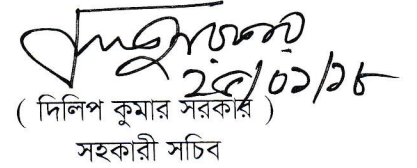 ২৫/০১/১৮
( দিলিপ কুমার সরকার )
সহকারী সচিব